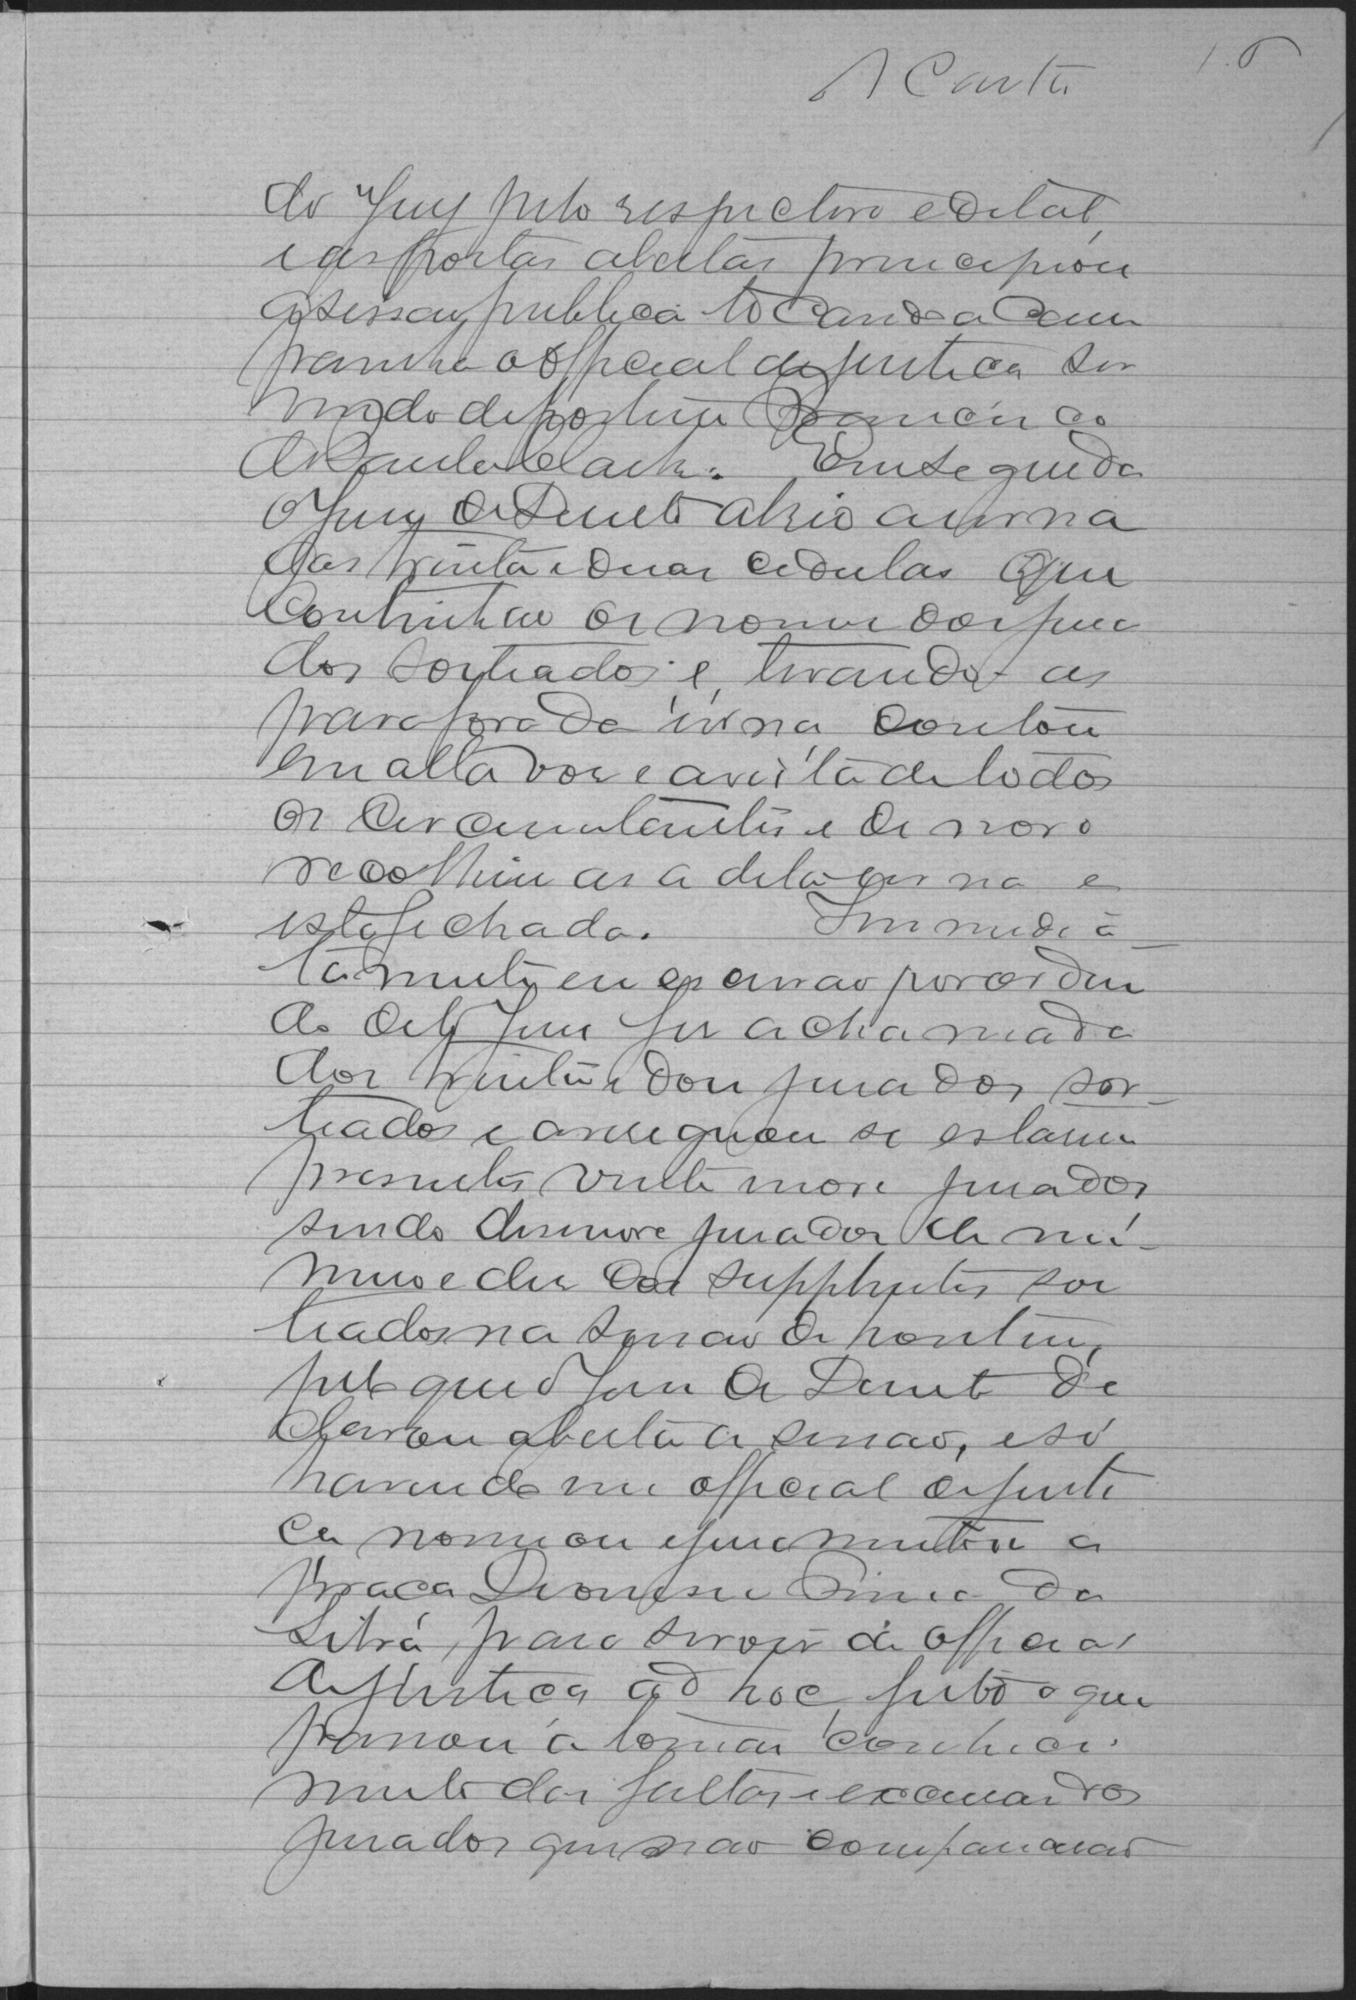 A Costa
do Juiz pelo respectivo edital,
e as portas abertas principiou
a sessão publica tocando a cam
painha o official de justiça ser
vindo de porteiro Francisco
de Paula. Em seguida
o Juiz de Direito abrio a urna
das trinta e duas cedulas que
continhão os nomes dos jura
dos sorteados e, tirando-as
para fora da urna contou
em alta voz e a vista de todos
os circunstantes e de novo
recolhiu as a dita urna e
esta fechada. Immedia
tamente eu escrivão por ordem
do dito Juiz fiz a chamada
dos trinta e dous jurados sor-
teados e averiguou se estarem
presentes vinte nove jurados
sendo desenove jurados do nu-
mero e dez dos supplentes sor
teados na sessão de hontem,
pelo que o Juiz de Direito de
clarou aberta a sessão, e só
havendo um official de justi
ça nomeou e juramentou a
praça Dionisio da
Silva, para servir de official
de justiça ad hoc, feito o que
passou a tomar conheci-
mento das faltas e escusas dos
jurados que não comparecerão